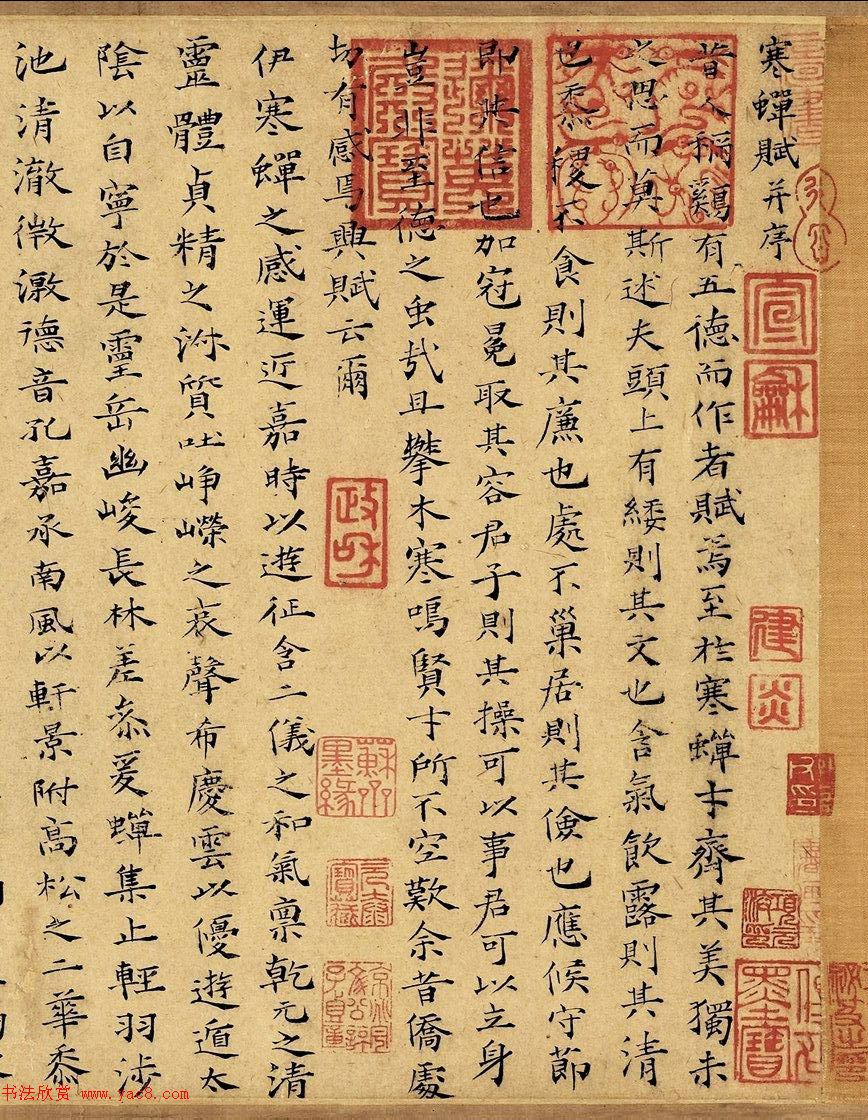 寒蟬賦并序
昔人稱鷄有五德而作者賦焉至於寒蟬才齊其美獨未
之思而莫斯述夫頭上有緌則其文也含氣飲露則其清
也黍稷不食則其廉也處不巢居則其儉也應候守節
即其信也加冠冕取其容君子則其操可以事君可以立身
豈非至德之虫哉且攀木寒鳴賢才所不空歎余昔僑處
切有感焉興賦云爾
伊寒蟬之感運近嘉時以遊征含二儀之和氣稟乾元之清
靈體貞精之淋質吐崢嶸之哀聲希慶雲以優遊遁太
陰以自寧於是靈岳幽峻長林差忝爰蟬集止輕羽涉
池清澈微激德音孔嘉承南風以軒景附高松之二華黍
宣龢
建炎
政和
蘇齋墨緣
书法欣赏 www.yac8.com